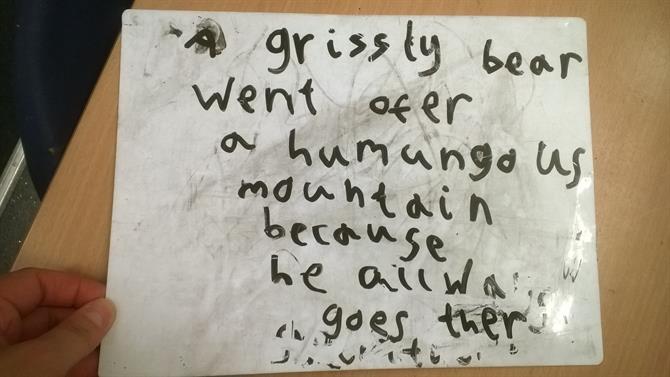 A grissly bear
went ofer
a humungous
mountain
because
he allways
goes ther